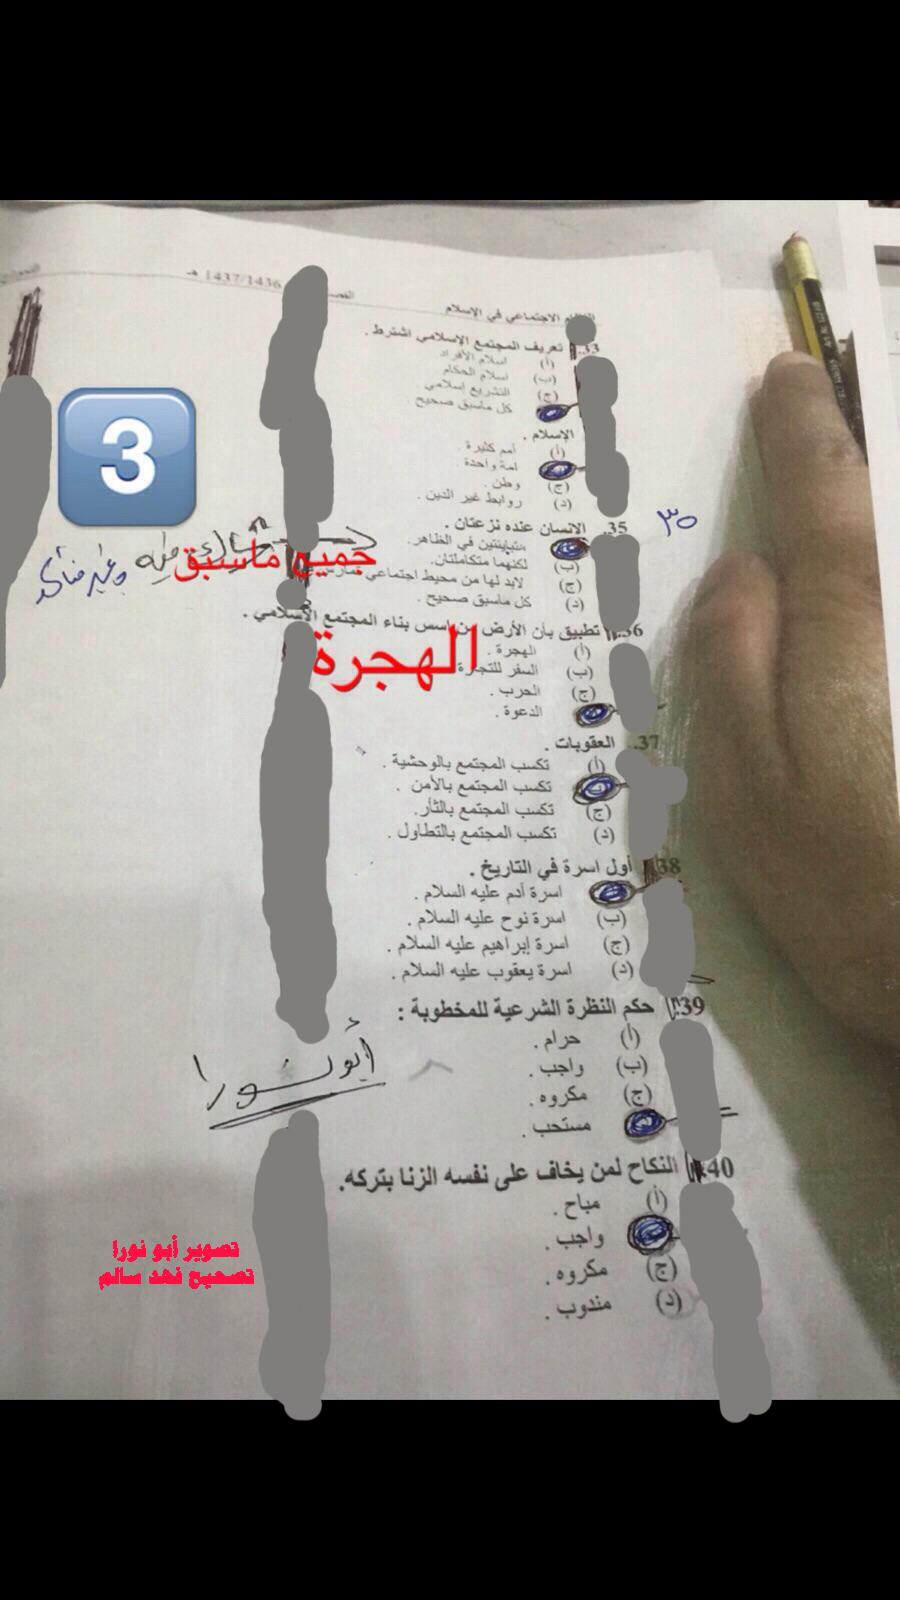 1437/1436 هـ
الاجتماعي في الإسلام
33. تعريف المجتمع الإسلامي اشترط .
(أ) اسلام الأفراد
(ب) اسلام الحكام
(ج) التشريع إسلامي
كل ماسبق صحيح
3
الإسلام .
(أ) أمم كثيرة .
امة واحدة .
(ج) وطن .
(د) روابط غير الدين .
35. الإنسان عنده نزعتان .
٣٥
متباينتين في الظاهر.
(ب) لكنهما متكاملتان.
(ج) لابد لها من محيط اجتماعي
(د) كل ماسبق صحيح .
جميع ماسبق
36. تطبيق بأن الأرض من اسس بناء المجتمع الإسلامي .
(أ) الهجرة .
(ب) السفر للتجارة
(ج) الحرب .
الدعوة .
الهجرة
37. العقوبات .
(أ) تكسب المجتمع بالوحشية .
تكسب المجتمع بالأمن .
(ج) تكسب المجتمع بالثأر.
(د) تكسب المجتمع بالتطاول .
38 أول اسرة في التاريخ .
اسرة أدم عليه السلام .
(ب) اسرة نوح عليه السلام .
(ج) اسرة إبراهيم عليه السلام .
(د) اسرة يعقوب عليه السلام .
39. حكم النظرة الشرعية للمخطوبة :
(أ) حرام .
(ب) واجب .
(ج) مكروه .
مستحب .
أبو نورا
40 النكاح لمن يخاف على نفسه الزنا بتركه.
(أ) مباح .
واجب .
(ج) مكروه .
(د) مندوب .
تصوير أبو نورا
تصحيح فهد سالم